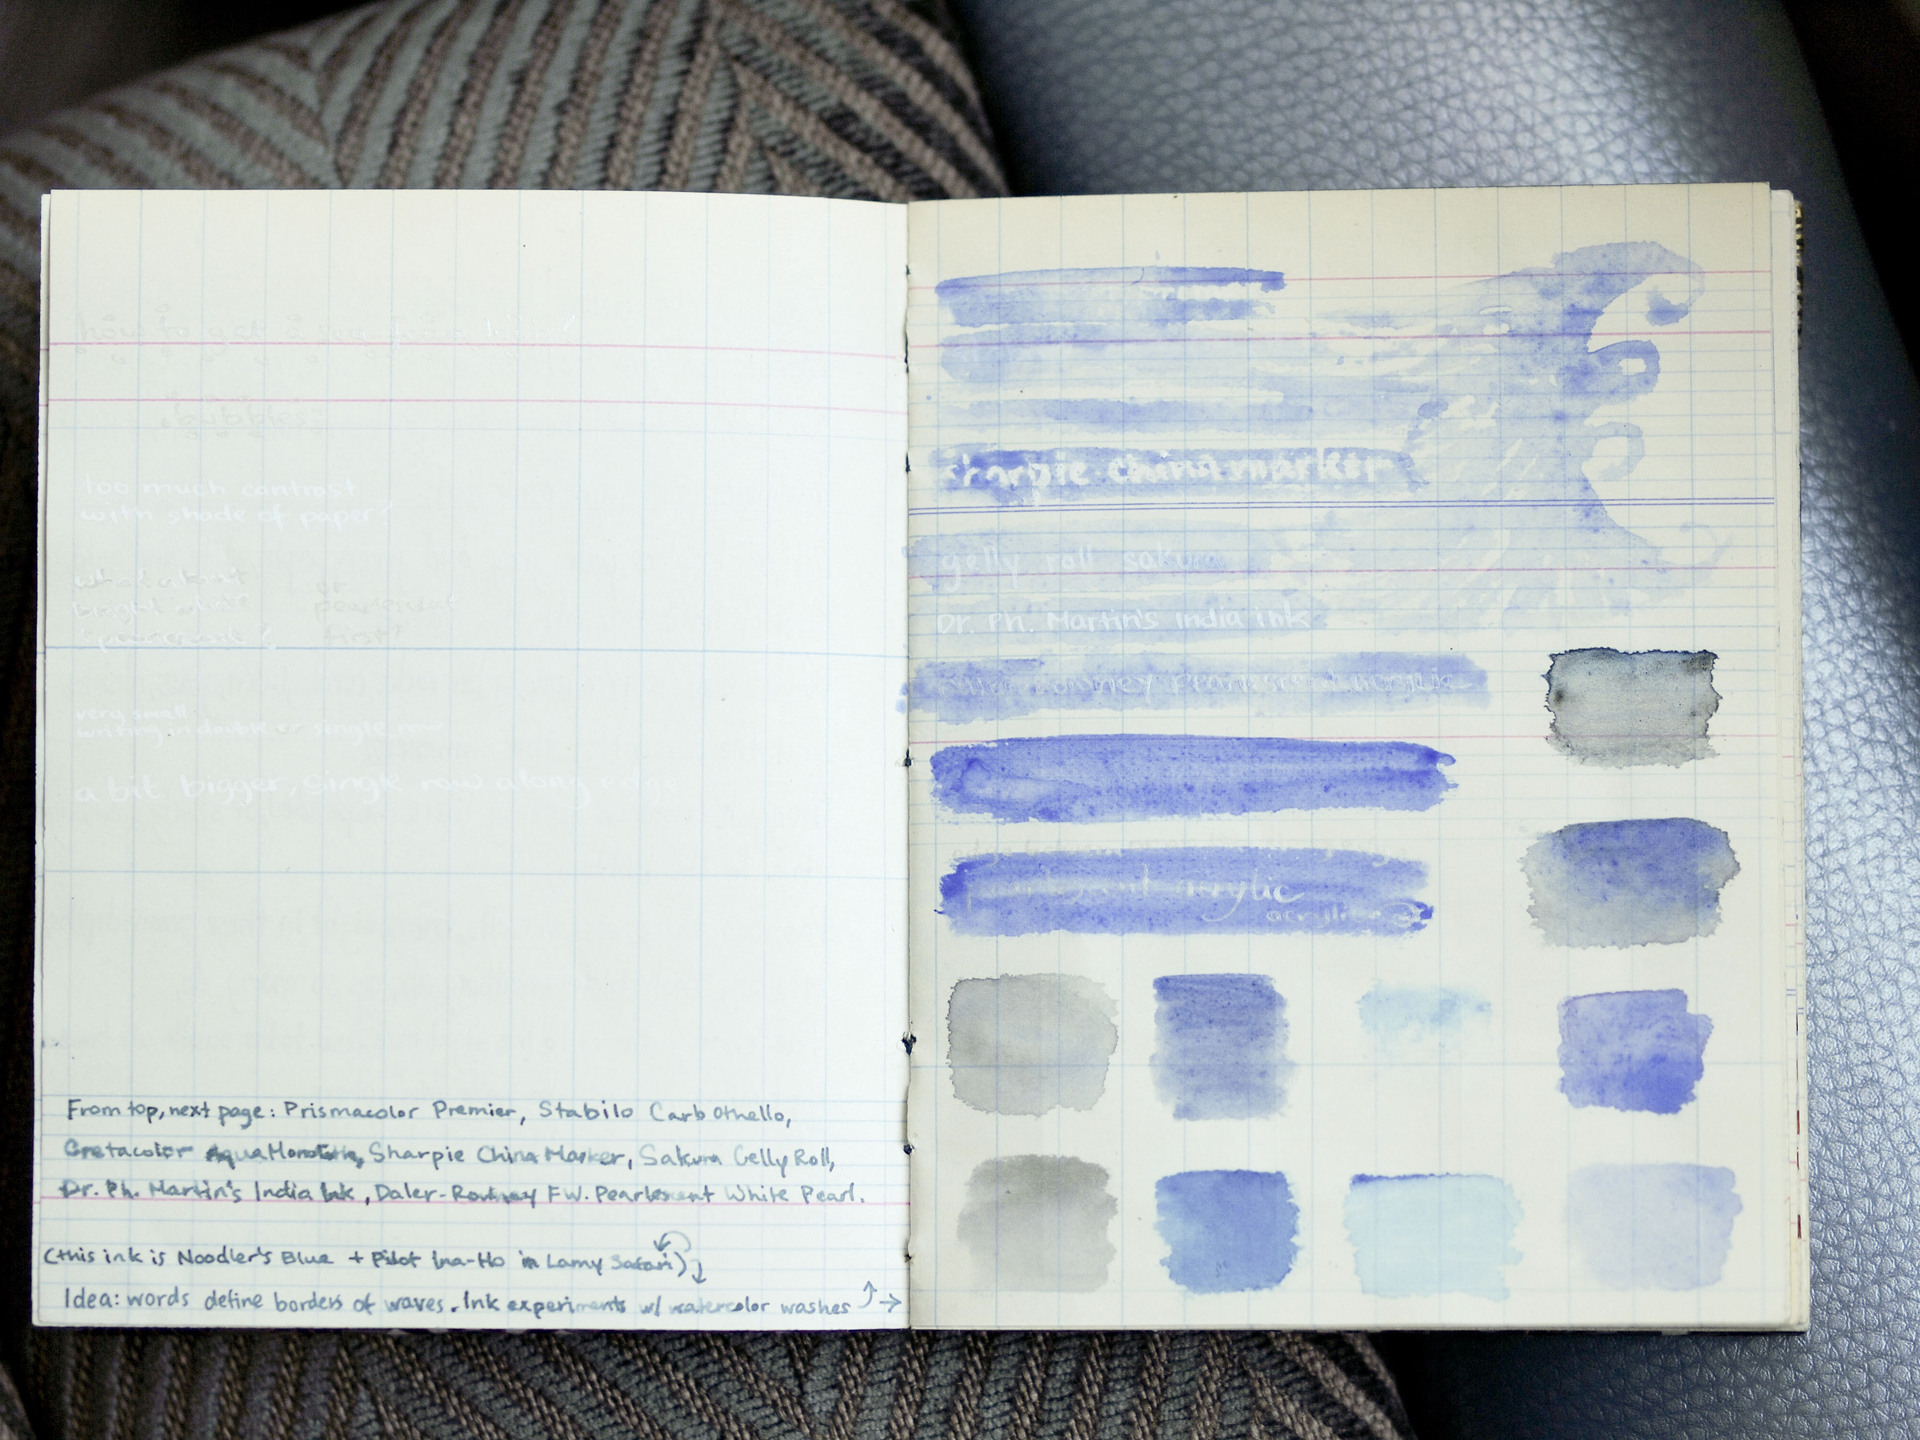 how to get a
too much contrast
with shade of paper?
what about or
bright white pearlescent
pearlescent? first?
very small
writing in double or single row
a bit bigger, single row along edge
From top, next page: Prismacolor Premier, Stabilo CarbOthello,
Cretacolor AquaMonolith, Sharpie China Marker, Sakura Gelly Roll,
Dr. Ph. Martin's India Ink, Daler-Rowney F.W. Pearlescent White Pearl.
(this ink is Noodler's Blue + Pilot Ina-Ho in Lamy Safari)
Idea: words define borders of waves. Ink experiments w/ watercolor washes
sharpie china marker
gelly roll sakura
Dr. Ph. Martin's India ink
daler rowney pearlescent acrylic
pearlescent acrylic
acrylic